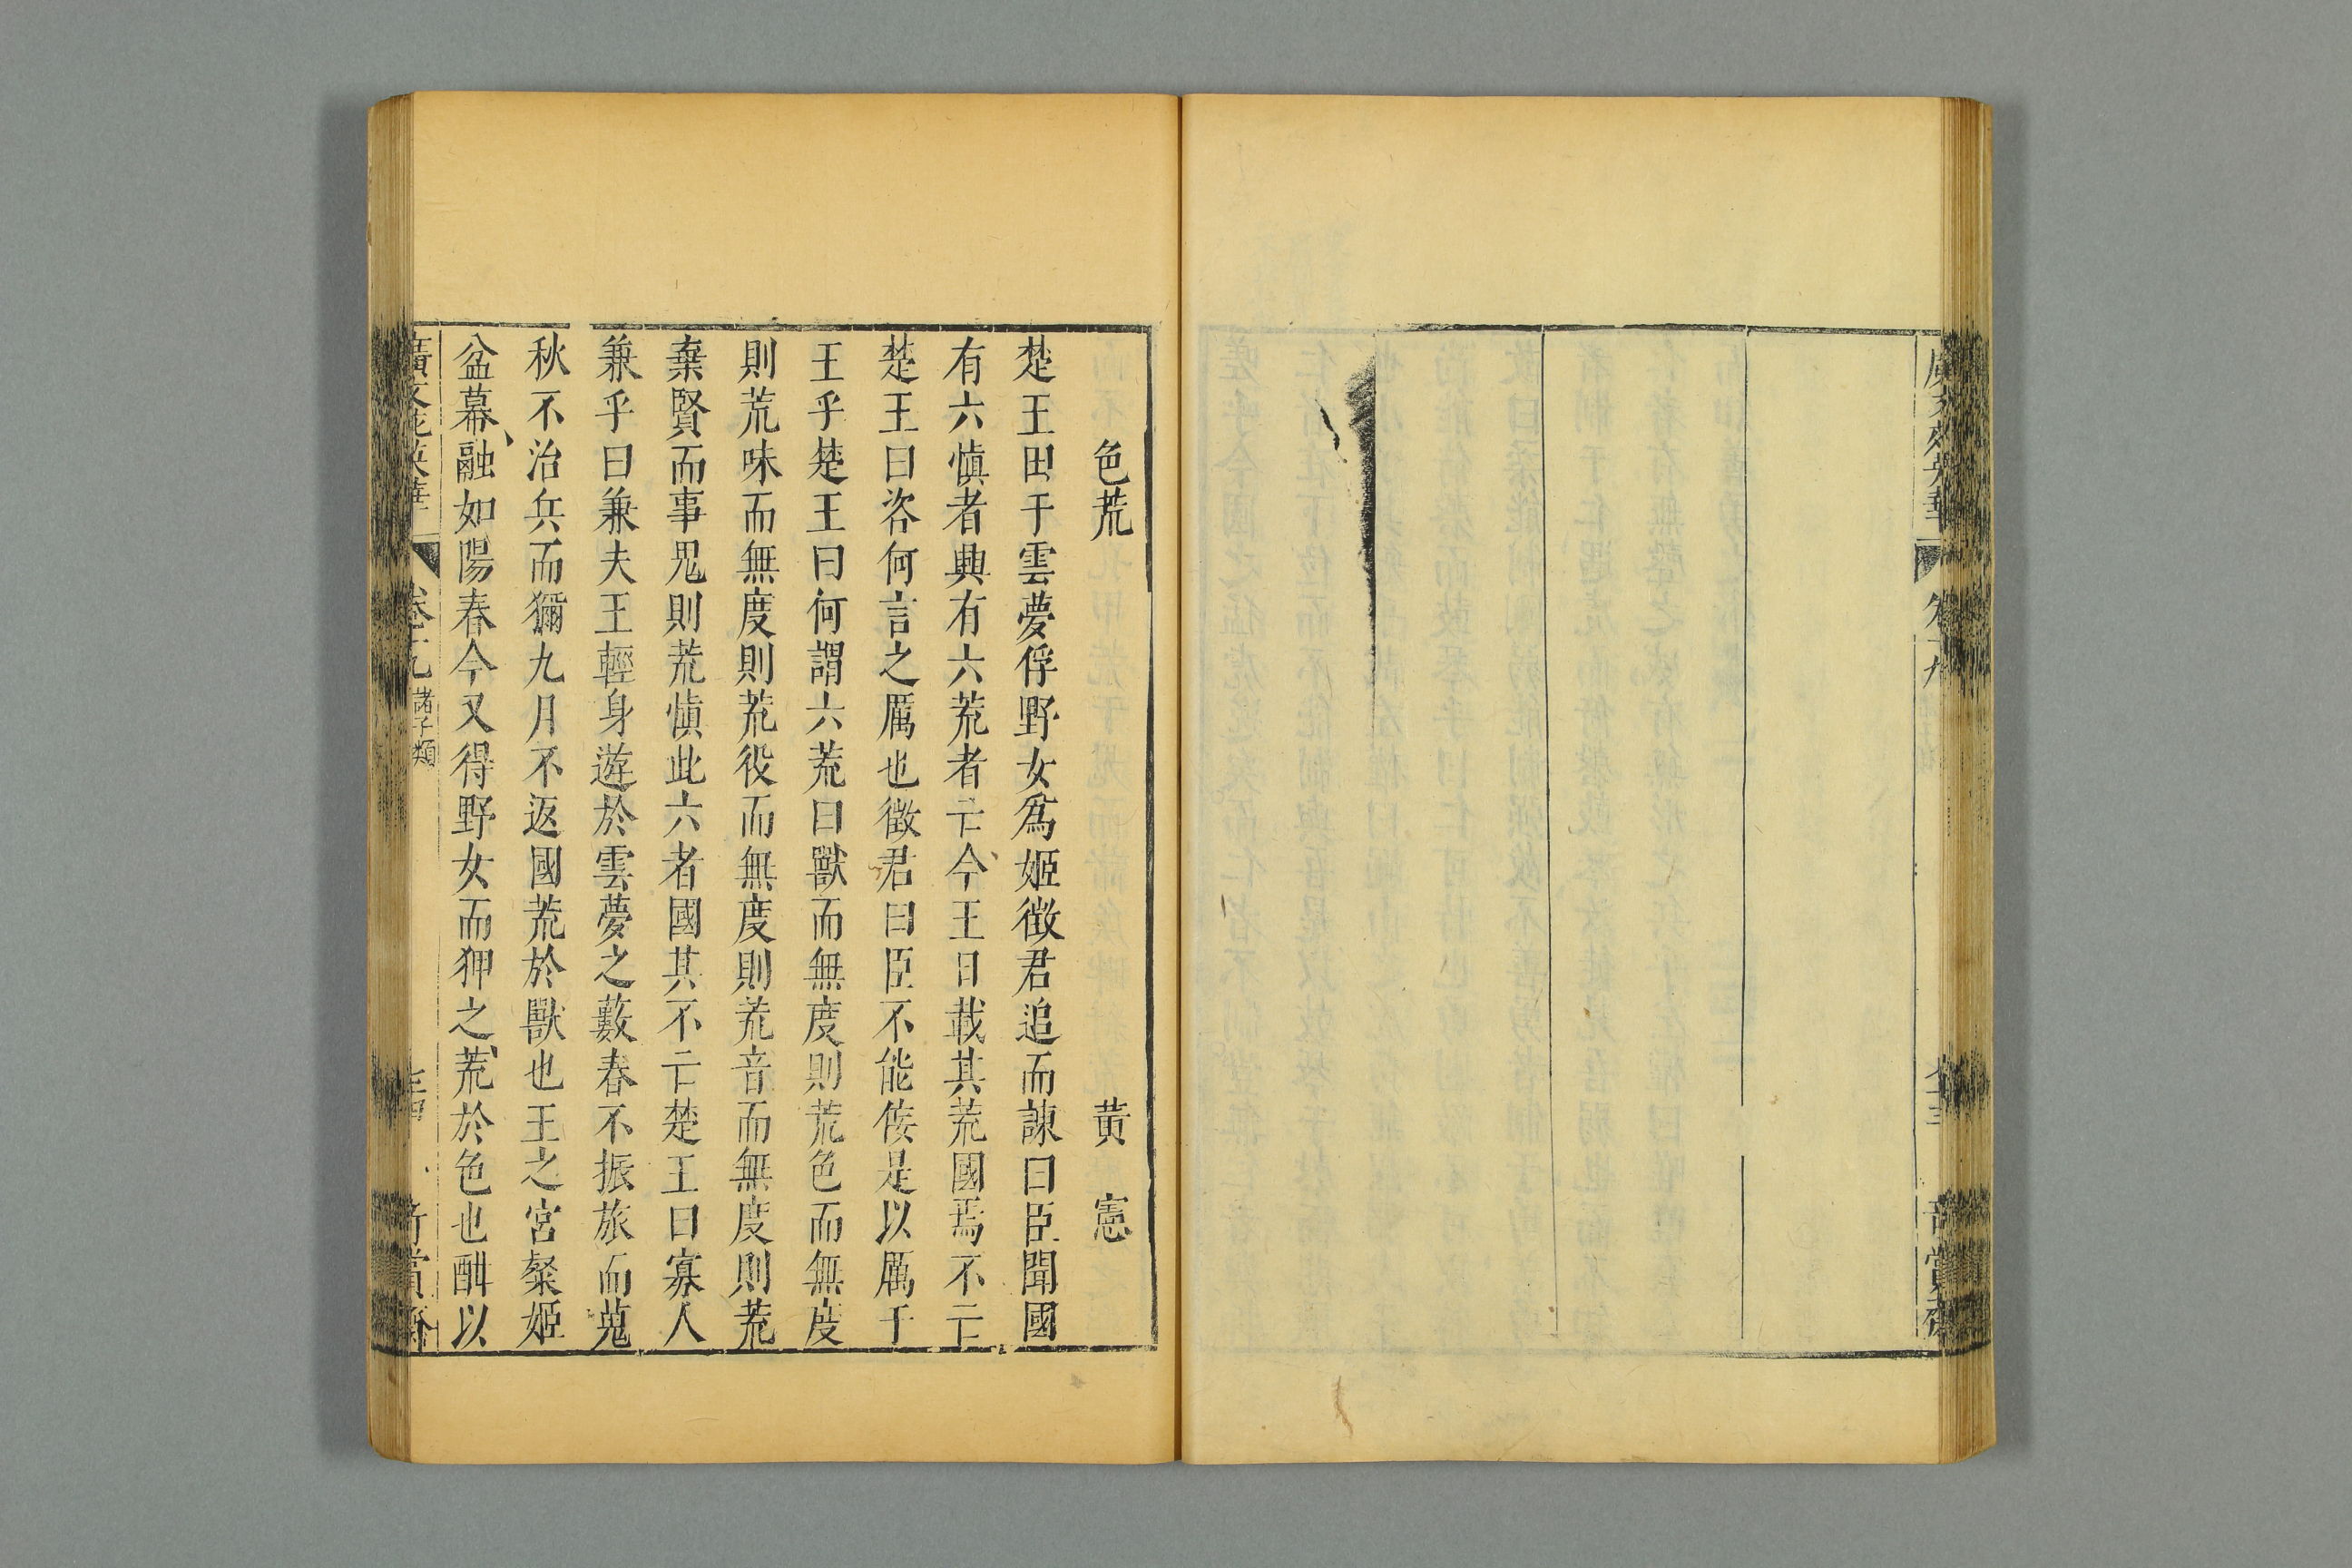 色荒　黃憲
楚王田于雲夢俘野女為姬徵君追而諫曰臣聞國
有六愼者興有六荒者亡今王日載其荒國焉不亡
楚王曰咨何言之厲也徵君曰臣不能佞是以厲于
王乎楚王曰何謂六荒曰獸而無度則荒色而無度
則荒味而無度則荒役而無度則荒音而無度則荒
棄賢而事鬼則荒愼此六者國其不亡楚王曰寡人
兼乎曰兼夫王輕身遊於雲夢之藪春不振旅而蒐
秋不治兵而獮九月不返國荒於獸也王之宮粲姬
盆幕融如陽春今又得野女而狎之荒於色也酣以
廣文苑英華　卷十九　諸子類　奇賞齋